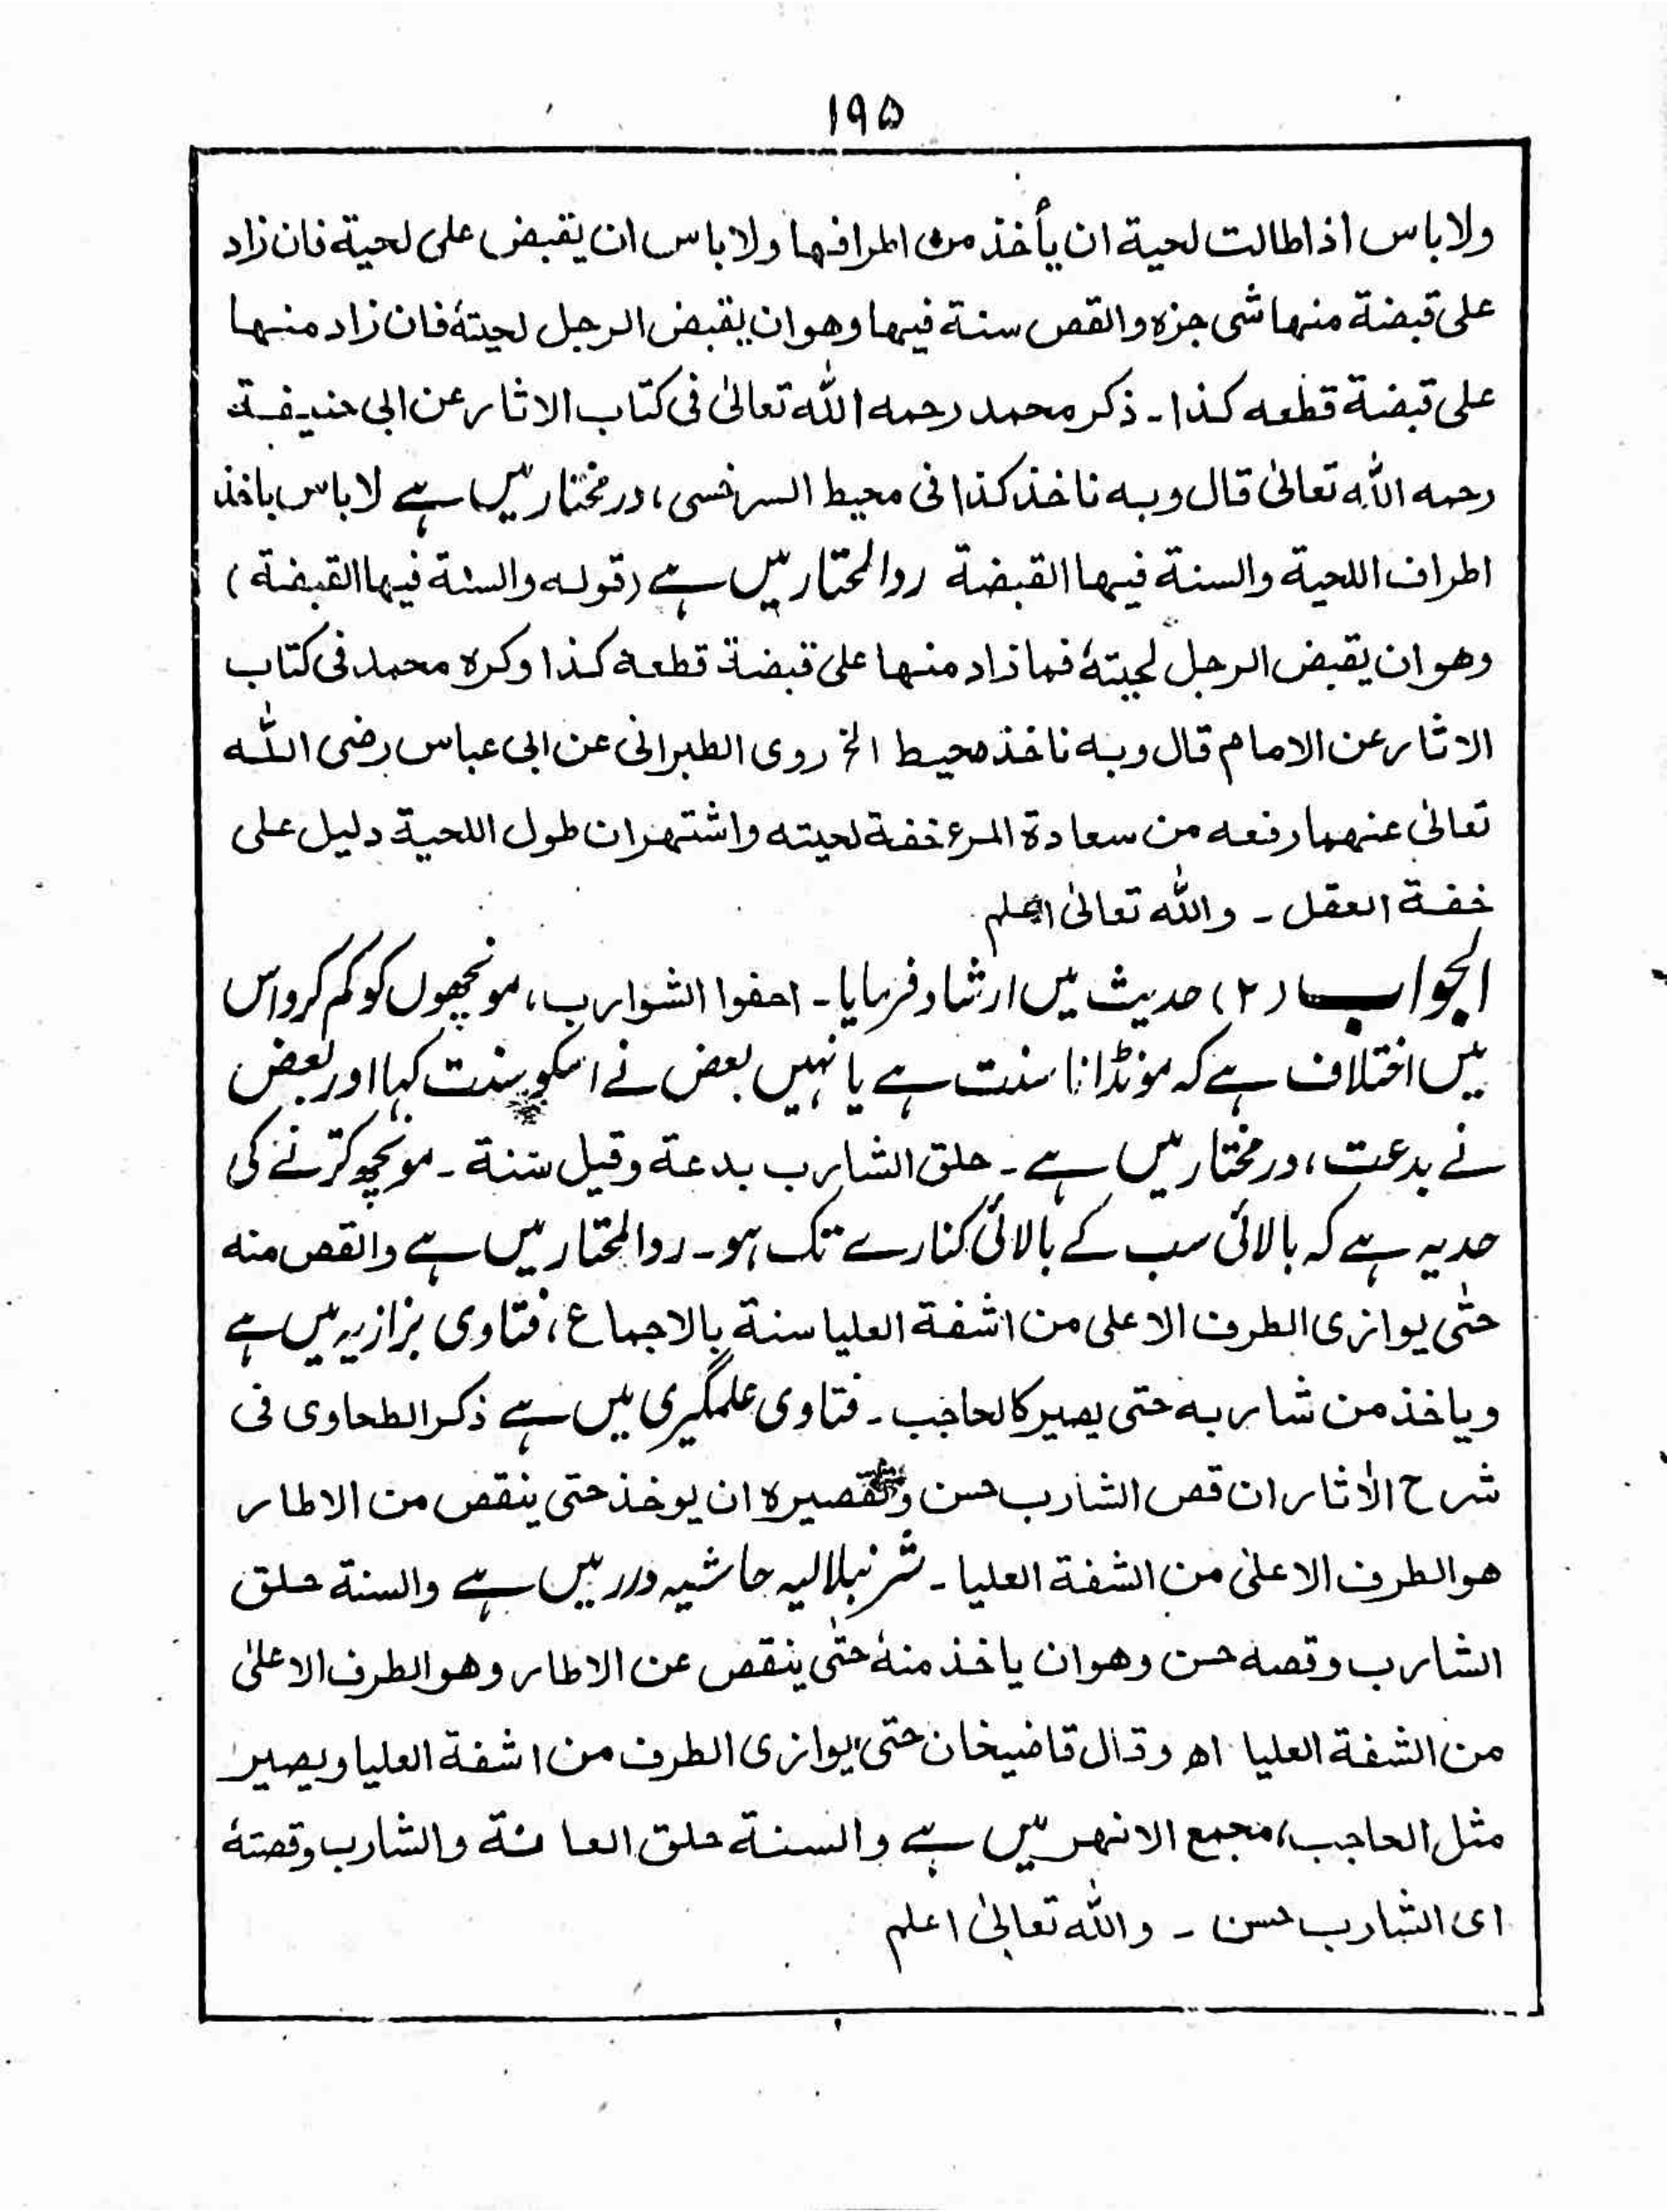 ۱۹۵
ولا باس اذا طالت لحیة ان یأخذ من اطرافها ولا باس ان یقبض علی لحیة فان زاد
علی قبضة منها شی جزه والقص سنة فیها وهو ان یقبض الرجل لحیتهٗ فان زاد منها
علی قبضة قطعه کذا ۔ ذکر محمد رحمه اللّٰه تعالیٰ فی کتاب الاثار عن ابی حنیفة
رحمه اللّٰه تعالیٰ قال وبه ناخذ کذا فی محیط السرخسی، درمختار میں ہے لا باس باخذ
اطراف اللحیة والسنة فیها القبضة ردالمحتار میں ہے (قوله والسنة فیها القبضة)
وهو ان یقبض الرجل لحیتهٗ فما زاد منها علی قبضة قطعه کذا وکره محمد فی کتاب
الاثار عن الامام قال وبه ناخذ محیط الخ روی الطبرانی عن ابی عباس رضی اللّٰه
تعالیٰ عنهما رفعه من سعادة المرء خفة لحیته واشتهر ان طول اللحیة دلیل علی
خفة العقل ۔ واللّٰه تعالیٰ اعلم
الجواب (۲) حدیث میں ارشاد فرمایا ۔ احفوا الشوارب، مونچھوں کو کم کرو اس
میں اختلاف ہے کہ مونڈانا سنت ہے یا نہیں بعض نے اسکو سنت کہا اور بعض
نے بدعت، درمختار میں ہے ۔ حلق الشارب بدعة وقیل سنة ۔ مونچھ کترنے کی
حد یہ ہے کہ بالائی سب کے بالائی کنارے تک ہو ۔ ردالمحتار میں ہے والقص منه
حتٰی یوازی الطرف الاعلی من اشفة العلیا سنة بالاجماع، فتاوی بزازیہ میں ہے
ویاخذ من شاربه حتی یصیر کالحاجب ۔ فتاوی علمگیری میں ہے ذکر الطحاوی فی
شرح الاٰثار ان قص الشارب حسن وتقصیره ان یوخذ حتی ینقص من الاطار
هو الطرف الاعلیٰ من الشفة العلیا ۔ شرنبلالیہ حاشیہ درر میں ہے والسنة حلق
الشارب وقصه حسن وهو ان یاخذ منهٗ حتٰی ینقص عن الاطار وهو الطرف الاعلیٰ
من الشفة العلیا اھ وقال قاضیخان حتی یوازی الطرف من اشفة العلیا ویصیر
مثل الحاجب، مجمع الانهر میں ہے والسنة حلق العانة والشارب وقصتهٗ
ای الشارب حسن ۔ واللّٰه تعالیٰ اعلم